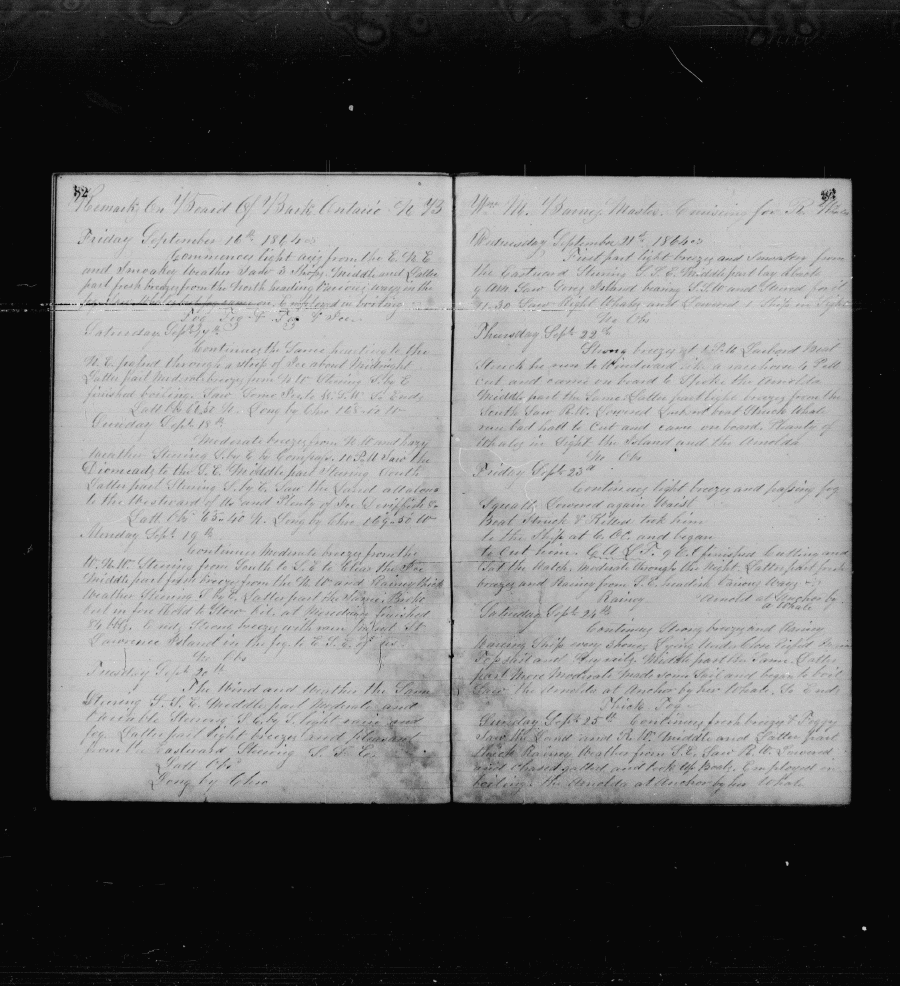 82
Remarks On Board Of Bark Ontario N B
Friday September 16th 1864
Commences light airs from the E. N. E
and Smoaky Weather Saw 3 Ships Middle and Latter
part fresh breezes from the North heading Various ways in the
on Employed in boiling
Fog Fog & Fog & Ice
Saturday Sept 17th
Continues the Same pointing to the
N. E. passed through a strip of Ice about Midnight
Latter part Moderate breezes from N W Stering S by E
finished boiling. Saw Some Ice to W. S. W. So Ends
Sunday Sept 18th
Moderate breezes from N. W and hazy
Weather Stering S. by E by Compass. 10 P.M Saw the
Diomeads to the S. E. Middle part Stering South
Latter part Stering S. by E. Saw the Land all along
to the Westward of us and Plenty of Ice
Latt Obs 65-40 N. Long by Chro 169-50 W
Monday Sept 19th
Continues Moderate breezes from the
W. N. W. Stering from South to S. E to Clear the Ice
Middle part from breeze from the N. W and Rainy thick
Weather Stering S by E. Latter part the Same. Broke
Out in fore Hold to Stow
So Ends Strong breezes with rain
Lawrence Island in the fog to E. S. E.
No Obs
Tuesday Sept 20th
The Wind and Weather the Same
Stering S. S. E. Middle part Moderate and
Variable Stering S. E. by S. light airs and
fog. Latter part light breezes and pleasant
from the Eastward Stering S. S. E.
Latt Obs
Long by Chro
Wm M. Barney Master Cruising for R. Whales
Wednesday September 21st 1864
First part light breezes and Smoakey from
the Eastward Stering S. S. E. Middle part lay Aback
9 AM Saw Island bearing S. S W and Stered for it
11-30 Saw Right Whales and Lowered Ship in Sight
No Obs
Thursday Sept 22nd
Strong breezes at 1 P.M Larboard Boat
Struck he run to Windward like a racehorse 4 P.M
Cut and came on board to Spoke the Arnolda
Middle part the Same Latter part light breezes from the
South Saw R. W. Lowered boat Struck Whale
run bad had to Cut and came on board. Plenty of
Whales in Sight the Island and the Arnolda
No Obs
Friday Sept 23rd
Continues light breezes and passing fog
Squalls Lowered again Waist
Boat Struck & Killed took him
to the Ship at 6. O'C. and began
to Cut him. 9 finished Cutting and
Set the Watch. Moderate through the Night. Latter part fresh
breezes and Rainey from S. E. headin Various Ways
Rainy Arnold at Anchor by
a Whale
Saturday Sept 24th
Continues Strong breezes and Rainy
Lying Under Close Reefed Main
Topsail and Middle part the Same. Latter
part More Moderate Made Some Sail and began to boil
Saw the Arnolda at Anchor by her Whale. So Ends
Thick Fog
Sunday Sept 25th Continues fresh breezes & Foggy
Saw the Land and R. W. Middle and Latter part
thick Rainey Weather from S. E. Saw R. W. Lowered
and Chased gallied and took Up Boats. Employed in
boiling. the Arnolda at Anchor by her Whale